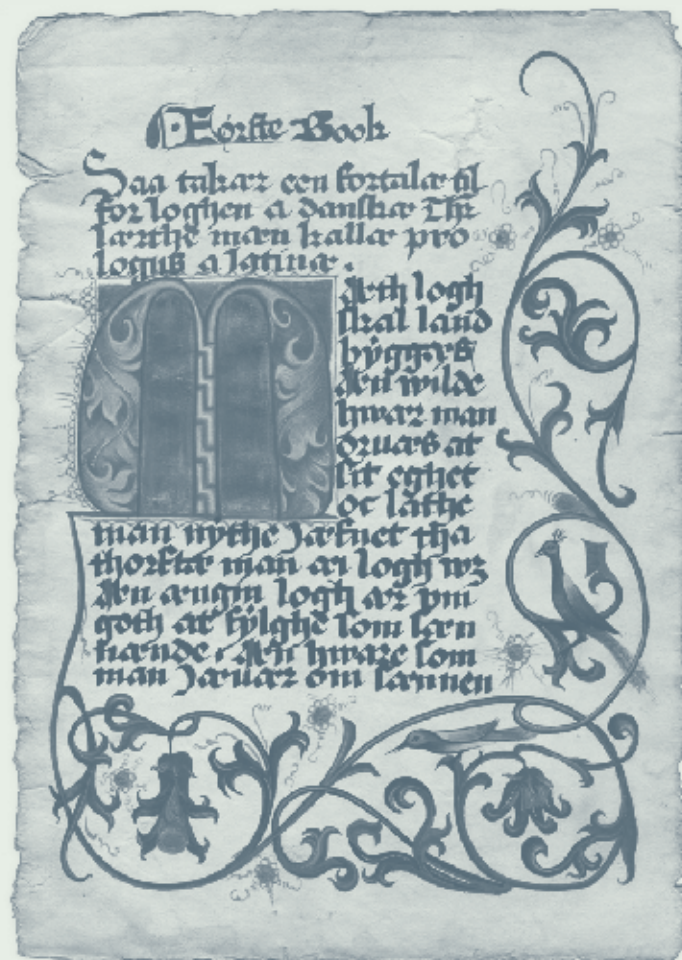 Fórste Book
Saa takær een fortalæ til
for loghen a danskæ Thr
lærthe mæn kallæ pro
logus a latinæ .
Mæth logh
skal land
bÿggæs
Æn wilde
hwar man
oruæs at
sit eghet
oc lathe
man nythe Jafnet tha
thorftæ man æi logh wz
Æn ængin logh ær ym
goth at fÿlghe som san
nænde . Æn hware som
man Jæuær om sannen